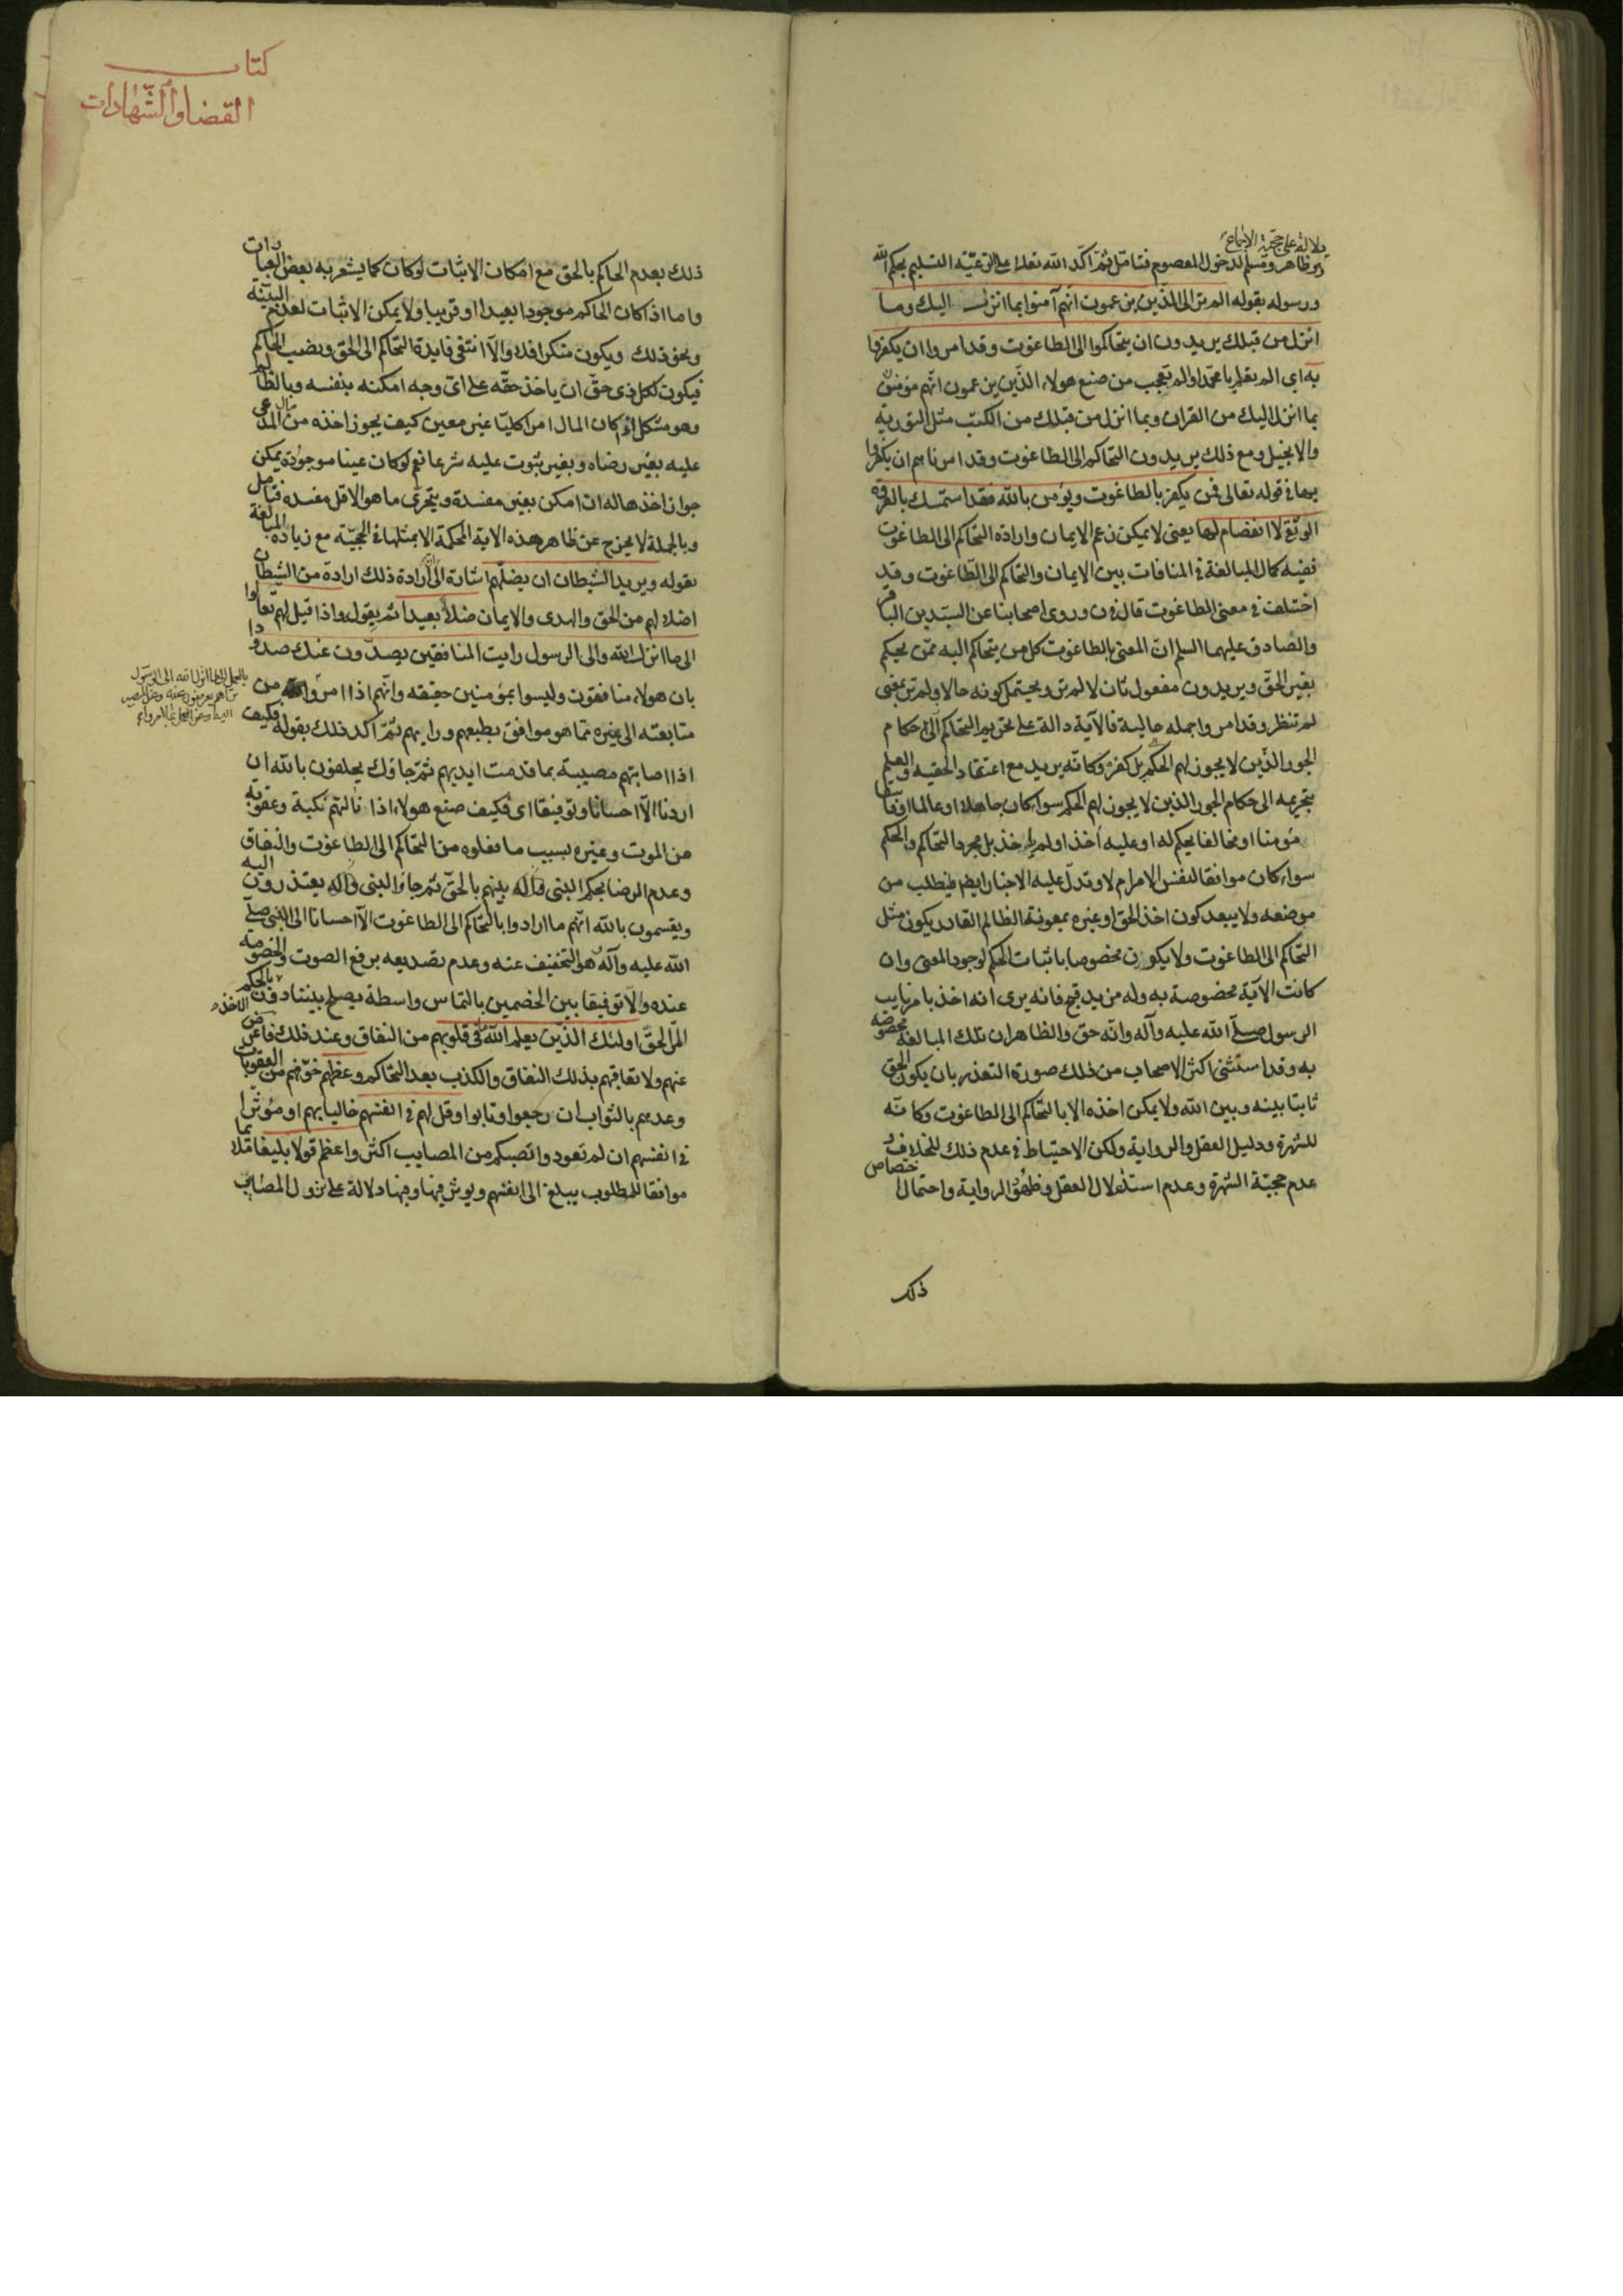 دلالة على حجية الاجماع
وهو ظاهر ومسلم لدخول المعصوم فتامل ثم اكد الله تعالى على الرعية التسليم بحكم الله
ورسوله بقوله الم تر الى الذين يزعمون انهم آمنوا بما انزل اليك وما
انزل من قبلك يريدون ان يتحاكموا الى الطاغوت وقد امروا ان يكفروا
به اي الم تعلم يا محمد اولم تعجب من صنع هولاء الذين يزعمون انهم مؤمنون
بما انزل اليك من القران وبما انزل من قبلك من الكتب مثل التورية
والانجيل ومع ذلك يريدون التحاكم الى الطاغوت وقد امرناهم ان يكفروا
بها في قوله تعالى فمن يكفر بالطاغوت ويؤمن بالله فقد استمسك بالعروة
الوثقى لا انفصام لها يعنى لا يمكن زعم الايمان وارادة التحاكم الى الطاغوت
ففيه كمال المبالغة في المنافات بين الايمان والتحاكم الى الطاغوت وقد
اختلف في معنى الطاغوت قال في ن وروى اصحابنا عن السيدين الباقر
والصادق عليهما السلم ان المعنى بالطاغوت كل من يتحاكم اليه ممن يحكم
بغير الحق ويريدون مفعول ثان لالم تر ويحتمل كونه حالا ولم تر بمعنى
لم تنظر وقد امروا جملة حالية فالآية دالة على تحريم التحاكم الى حكام
الجور الذين لا يجوز لهم الحكم بل كفره وكانه يريد مع اعتقاد الحقية والعلم
بتحريمه الى حكام الجور الذين لا يجوز لهم الحكم سواء كان جاهلا او عالما فاسقا
مؤمنا او مخالفا يحكم له او عليه أخذ او لم يأخذ بل مجرد التحاكم والحكم
سواء كان موافقا لنفس الامر ام لا وتدل عليه الاخبار ايضا فيطلب من
موضعه ولا يبعد كون اخذ الحق او غيره بمعونة الظالم القادر يكون مثل
التحاكم الى الطاغوت ولا يكون مخصوصا باثبات الحكم لوجود المعنى وان
كانت الآية مخصوصة به وله مزيد قبح فانه يرى انه اخذ بامر نايب
الرسول صلى الله عليه وآله وانه حق والظاهر ان تلك المبالغة مخصوصة
به وقد استثنى اكثر الاصحاب من ذلك صورة التعذر بان يكون الحق
ثابتا بينه وبين الله ولا يمكن اخذه الا بالتحاكم الى الطاغوت وكانه
للشهرة ودليل العقل والرواية ولكن الاحتياط في عدم ذلك للخلاف و
عدم حجية الشهرة وعدم استقلال العقل وظهور الرواية واحتمال اختصاص
ذلك
كتاب
القضا والشهادات
ذلك بعدم الحاكم بالحق مع امكان الاثبات لو كان كما يشعر به بعض العبارات
واما اذا كان الحاكم موجودا بعيدا او قريبا ولا يمكن الاثبات لعدم البينة
ونحو ذلك ويكون منكرا فلا والا انتفى فايدة التحاكم الى الحق ونصب الحاكم
فيكون لكل ذى حق ان ياخذ حقه على اي وجه امكنه بنفسه وبالظالم
وهو مشكل اذ كان المال امرا كليا غير معين كيف يجوز اخذه من مال المدعى
عليه بغير رضاه وبغير ثبوت عليه شرعا نعم لو كان عينا موجودة يمكن
جواز اخذها له ان امكن بغير مفسدة ويتحرى ما هو الاقل مفسدة فتامل
وبالجملة لا يخرج عن ظاهر هذه الاية المحكمة الا بمثلها في الحجية مع زيادة المبالغة
بقوله ويريد الشيطان ان يضلهم اشارة الى ان ارادة ذلك ارادة من الشيطان
اضلالهم من الحق والهدى والايمان ضلالا بعيدا ثم بقوله واذا قيل لهم تعالوا
الى ما انزل الله والى الرسول رايت المنافقين يصدون عنك صدودا
بان هولاء منافقون وليسوا بمؤمنين حقيقة وانهم اذا امروا من
متابعته الى غيره مما هو موافق بطبعهم ورايهم ثم اكد ذلك بقوله فكيف
اذا اصابتهم مصيبة بما قدمت ايديهم ثم جاؤك يحلفون بالله ان
اردنا الا احسانا وتوفيقا اى فكيف صنع هولاء اذا نالتهم نكبة وعقوبة
من الموت وغيره بسبب ما فعلوه من التحاكم الى الطاغوت والنفاق
وعدم الرضا بحكم النبى وآله بينهم بالحق ثم جاؤا النبى وآله يعتذرون اليه
ويقسمون بالله انهم ما ارادوا بالتحاكم الى الطاغوت الا احسانا الى النبى صلى
الله عليه وآله هو التخفيف عنه وعدم تصديعه برفع الصوت والخصومة
عنده والا توفيقا بين الخصمين بالتماس واسطة يصلح بيننا دون الاخذ بالحكم
المر الحق اولئك الذين يعلم الله ما في قلوبهم من النفاق وعند ذلك فاعرض
عنهم ولا تعاقبهم بذلك النفاق والكذب بعد التحاكم وعظهم خوفهم من العقوبات
وعدهم بالثواب ان رجعوا وتابوا وقل لهم في انفسهم خاليا بهم او مؤثرا
في انفسهم ان لم تعودوا تصبكم من المصايب اكثر واعظم قولا بليغا
موافقا للمطلوب يبلغ الى انفسهم ويوثر فيها وفيها دلالة على نزول المصايب